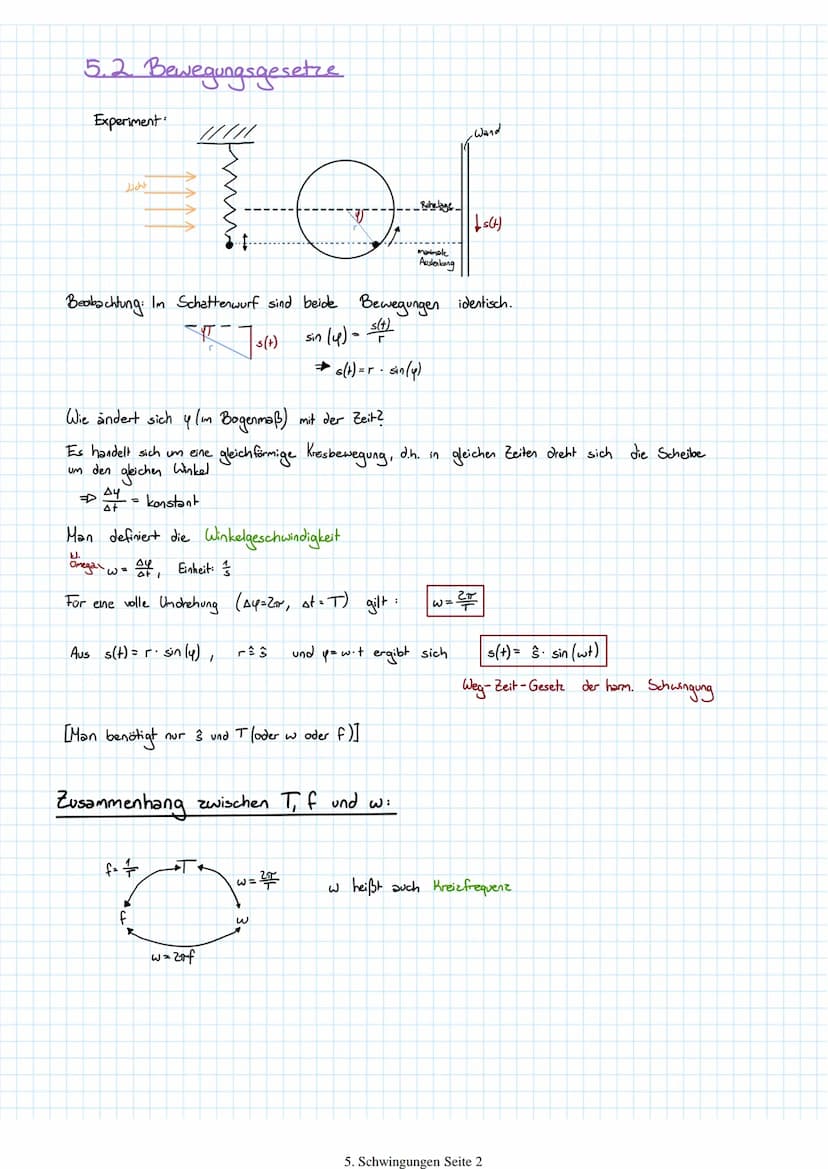 5.2 Bewegungsgesetze
Experiment:
Wand
Licht
Ruhelage
φ
r
↓s(t)
maximale
Auslenkung
Beobachtung: Im Schattenwurf sind beide Bewegungen identisch.
φ r s(t) sin(φ) = s(t)/r
⇒ s(t) = r · sin(φ)
Wie ändert sich φ (im Bogenmaß) mit der Zeit?
Es handelt sich um eine gleichförmige Kreisbewegung, d.h. in gleichen Zeiten dreht sich die Scheibe
um den gleichen Winkel
⇒ Δφ/Δt = konstant
Man definiert die Winkelgeschwindigkeit
kl.
Omega ω = Δφ/Δt, Einheit: 1/s
Für eine volle Umdrehung (Δφ=2π, Δt=T) gilt: ω = 2π/T
Aus s(t) = r · sin(φ), r ≙ ŝ und φ = ω·t ergibt sich s(t) = ŝ · sin(ωt)
Weg-Zeit-Gesetz der harm. Schwingung
[Man benötigt nur ŝ und T (oder ω oder f)]
Zusammenhang zwischen T, f und ω:
f = 1/T T
ω = 2π/T
ω heißt auch Kreizfrequenz
f ω
ω = 2πf
5. Schwingungen Seite 2